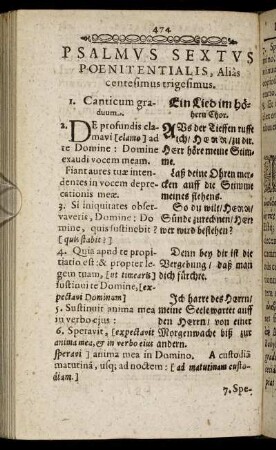 474
PSALMVS SEXTVS
POENITENTIALIS, Aliàs
centesimus trigesimus.
1. Canticum gra-
duum.
2. DE profundis cla-
mavi [clamo] ad
te Domine: Domine
exaudi vocem meam.
Fiant aures tuæ inten-
dentes in vocem depre-
cationis meæ.
3. Si iniquitates obser-
vaveris, Domine: Do
mine, quis sustinebit?
[quis stabit?]
4. Quia apud te propi
tiatio est: & propter le
gem tuam, [ut timearis]
sustinui te Domine, [ex-
pectavi Dominum]
5. Sustinuit anima mea
in verbo ejus:
6. Speravit, [expectavit
anima mea, & in verbo ejus
speravi] anima mea in Domino. A custodiâ
matutinâ, usq; ad noctem: [ad matutinam custo-
diam.]
Ein Lied im hö-
hern Chor.
AVs der Tieffen ruffe
ich/ HErr/ zu dir.
Herr höre meine Stim-
me.
Laß deine Ohren mer-
cken auff die Stimme
meines flehens.
So du wilt/ HErr/
Sünde zurechnen/ Herr
wer wird bestehen?
Denn bey dir ist die
Vergebung/ daß man
dich fürchte.
Ich harre des Herrn/
meine Seele wartet auff
den Herrn/ von einer
Morgenwache biß zur
andern.
7. Spe-